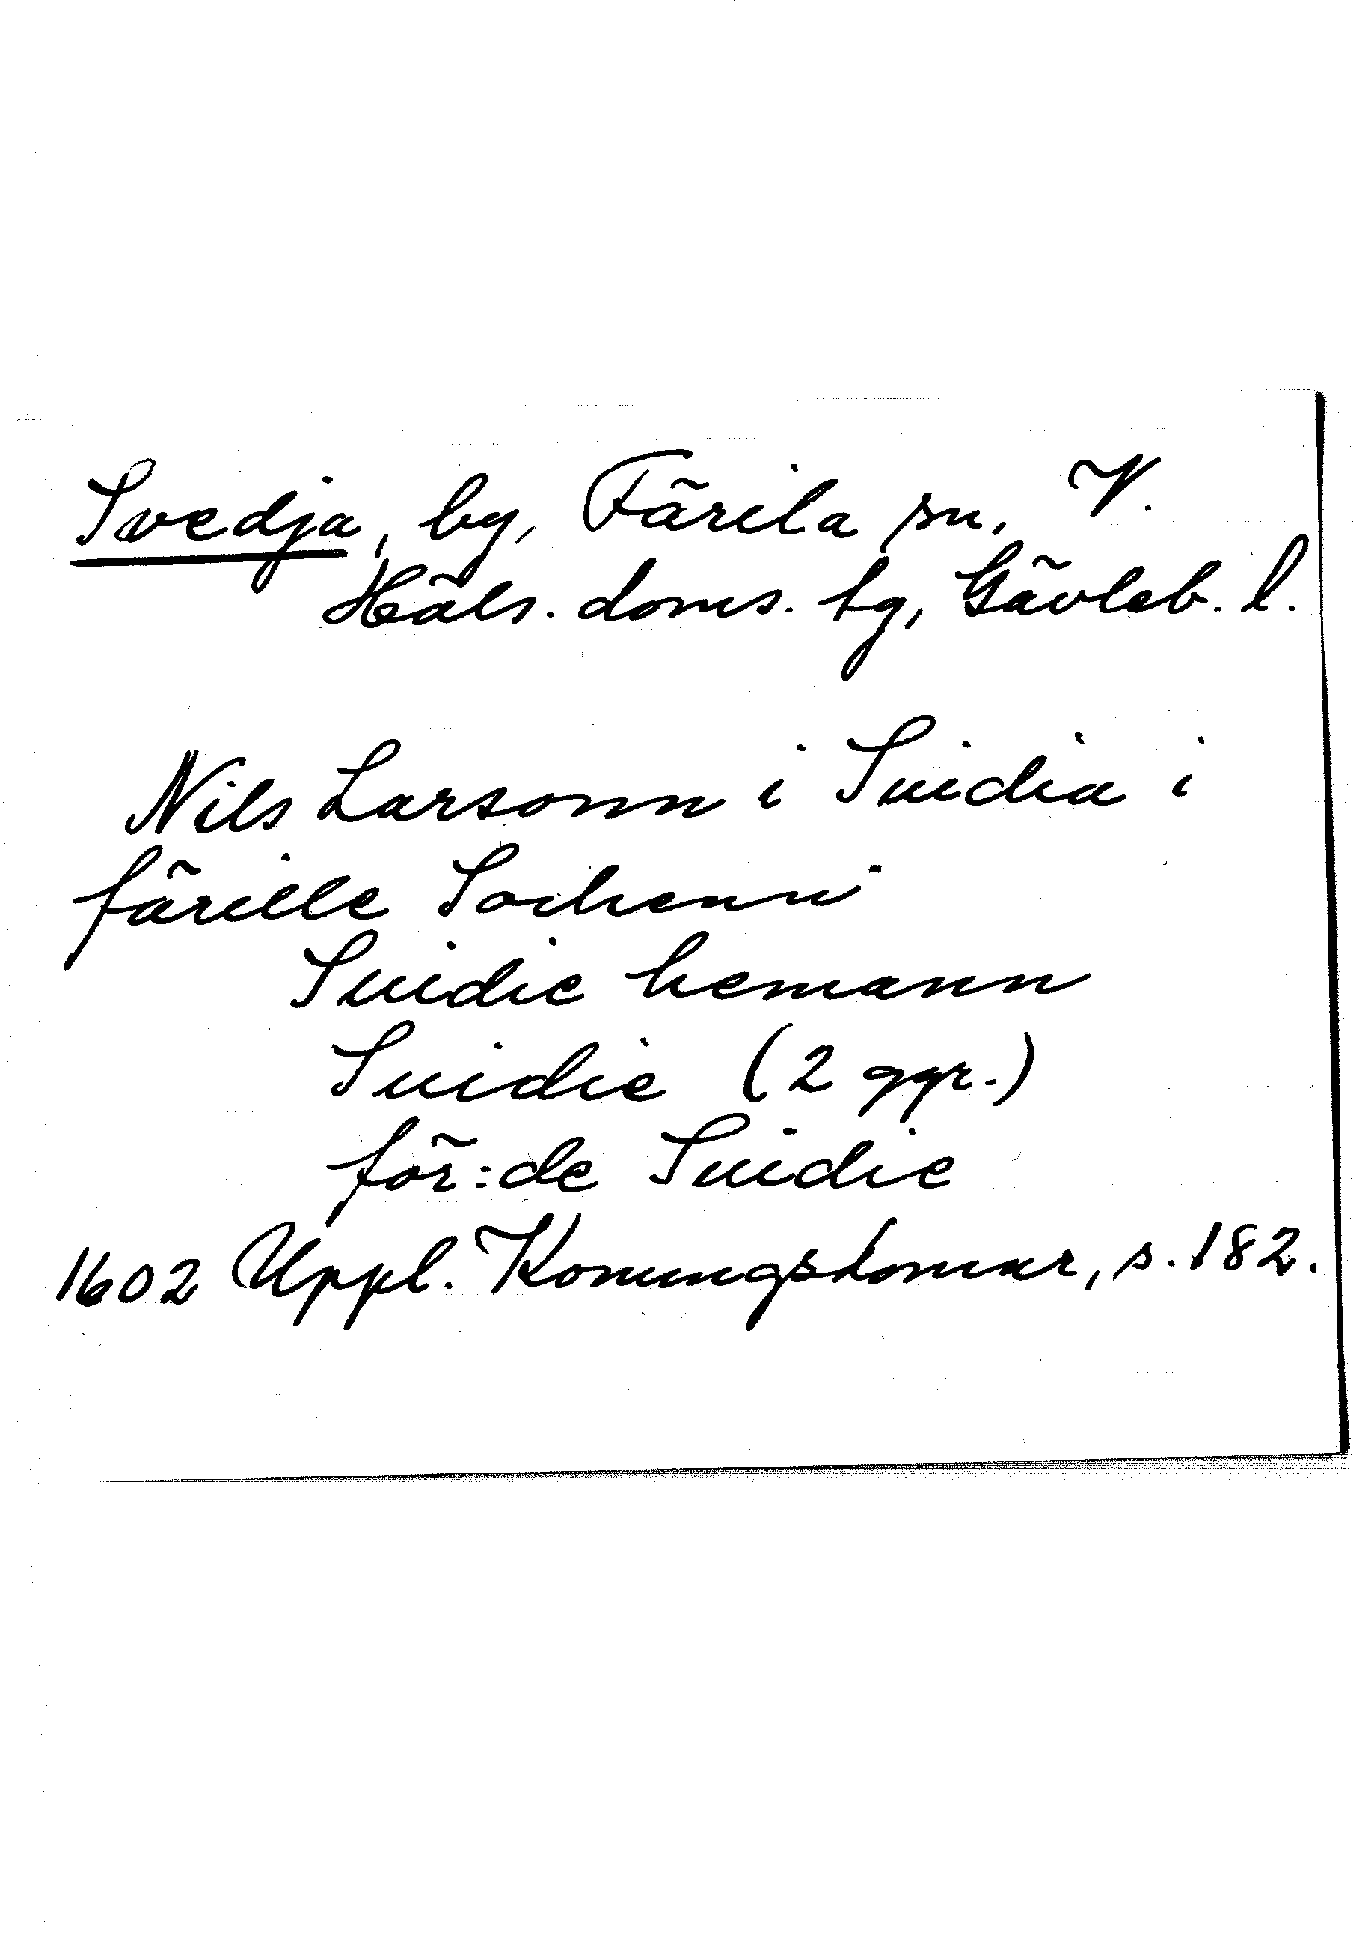 Svedja, by, Färila sn, V.
Häls. doms. tg, Gävleb. l.
Nils Larsonn i Suidia i
färille Sochenn
Suidie hemann
Suidie (2 ggr.)
för:de Suidie
1602 Uppl. Konungsdomar, s. 182.